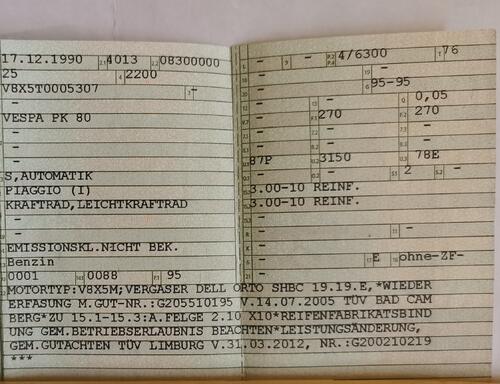 17.12.1990 2.1 4013 2.2 08300000
25 4 2200
V8X5T0005307 3 -
-
VESPA PK 80
-
-
-
S,AUTOMATIK
PIAGGIO (I)
KRAFTRAD,LEICHTKRAFTRAD
-
-
EMISSIONSKL.NICHT BEK.
Benzin
0001 0088 95
- 9 - P.2 P.4 4/6300 T 76
- -
- G 95-95
- - Q 0,05
- 270 F.2 270
- - -
- - -
87P U.2 3150 U.3 78E
- - 2 S.2 -
3.00-10 REINF.
3.00-10 REINF.
- S1 -
-
-
- E ohne-ZF-
MOTORTYP:V8X5M;VERGASER DELL ORTO SHBC 19.19.E,*WIEDER
ERFASSUNG M.GUT-NR.:G205510195 V.14.07.2005 TÜV BAD CAM
BERG*ZU 15.1-15.3:A.FELGE 2.10 X10*REIFENFABRIKATSBIND
UNG GEM.BETRIEBSERLAUBNIS BEACHTEN*LEISTUNGSÄNDERUNG,
GEM.GUTACHTEN TÜV LIMBURG V.31.03.2012, NR.:G200210219
***